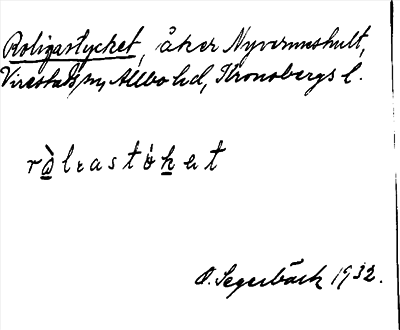 Roligastycket, åker Nyvermeshult,
Virestads sn, Allbo hd, Kronobergs l.
ròlɩastỏket
O. Segerbäck 1932.